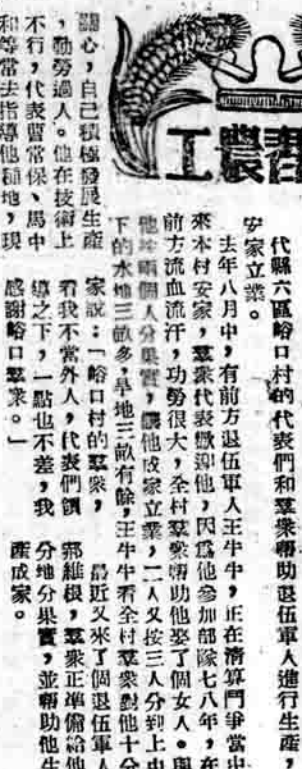 書農工
代縣六區峪口村的代表們和羣衆幫助退伍軍人進行生產，
安家立業。
去年八月中，有前方退伍軍人王牛牛，正在清算鬥爭當中
來本村安家，羣衆代表歡迎他，因爲他參加部隊七八年，在
前方流血流汗，功勞很大，全村羣衆幫助他娶了個女人。與
他按兩個人分果實，讓他成家立業，二人又按三人分到上中
下的水地三畝多，旱地三畝有餘，王牛牛看全村羣衆對他十分
關心，自己積極發展生產
，勤勞過人。他在技術上
不行，代表曹常保、馬中
和等常去指導他種地，現
家說：「峪口村的羣衆，
看我不當外人，代表們領
導之下，一點也不差，我
感謝峪口羣衆。」
最近又來了個退伍軍人
郭維根，羣衆正準備給他
分地分果實，並幫助他生
產成家。